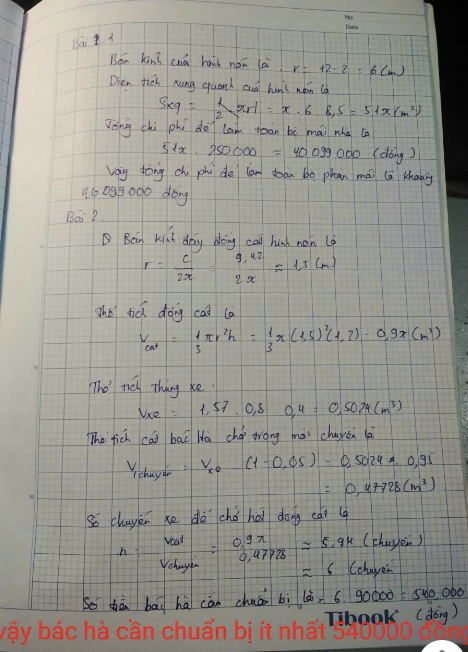 No
Date
Bài 1
Bán kính của hình nón là : r = 12 : 2 = 6 (m)
Diện tích xung quanh của hình nón là
Sxq = πrl = π . 6 . 8,5 = 51π (m²)
Tổng chi phí để làm toàn bộ mái nhà là
51π . 250 000 ≈ 40 099 000 (đồng)
Vậy tổng chi phí để làm toàn bộ phần mái là khoảng
40 099 000 đồng
Bài 2
1) Bán kính đáy đống cát hình nón là
r = C/2π = 9,42/2π ≈ 1,5 (m)
Thể tích đống cát là
V cát = 1/3 πr²h = 1/3 π (1,5)² (1,2) = 0,9π (m³)
Thể tích thùng xe :
Vxe = 1,57 . 0,8 . 0,4 = 0,5024 (m³)
Thể tích cát bác Hà chở trong mỗi chuyến là
V1chuyến = Vxe (1 - 0,05) = 0,5024 . 0,95
= 0,47728 (m³)
Số chuyến xe để chở hết đống cát là
n = Vcát/Vchuyến = 0,9π/0,47728 ≈ 5,94 (chuyến)
≈ 6 (chuyến
Số tiền bác hà cần chuẩn bị là = 6 . 90000 = 540.000
Tibook (đồng)
vậy bác hà cần chuẩn bị ít nhất 540000 đồng